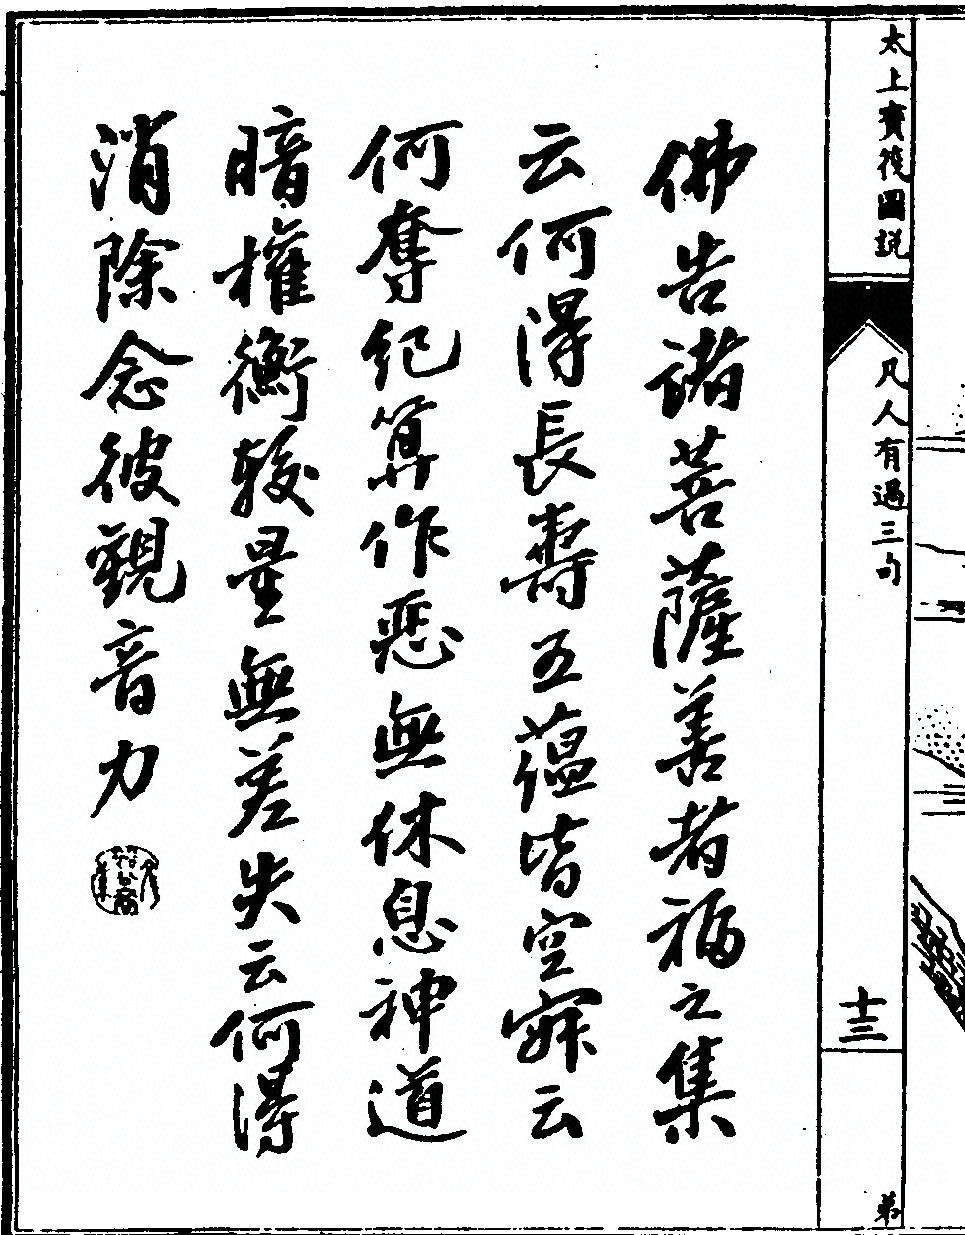 太上寶筏圖說
凡人有過三句
十三
弟
佛告諸菩薩善者福之集
云何得長壽五蘊皆空寂云
何奪紀算作惡無休息神道
暗權衡較量無差失云何得
消除念彼觀音力